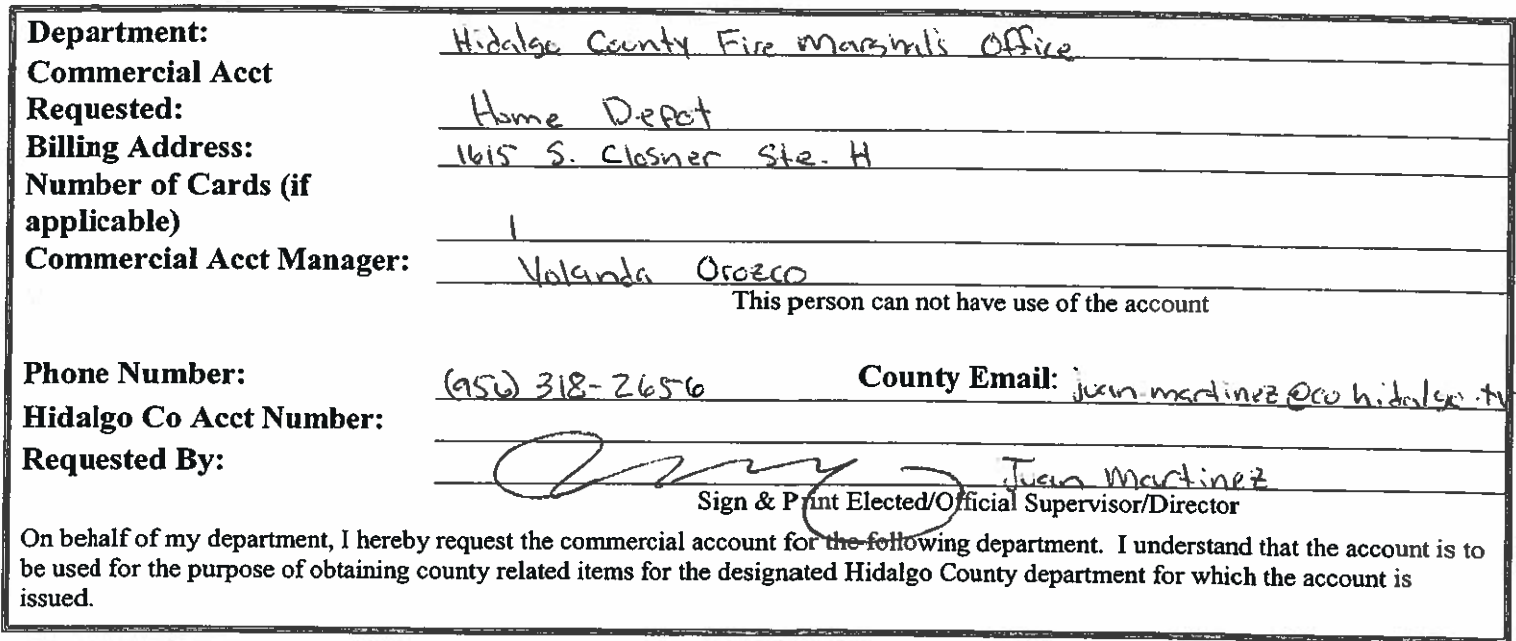 Department: Hidalgo County Fire Marshal's Office
Commercial Acct
Requested: Home Depot
Billing Address: 1615 S. Closner Ste. H
Number of Cards (if
applicable) 1
Commercial Acct Manager: Yolanda Orozco
This person can not have use of the account
Phone Number: (956) 318-2656 County Email: juan.martinez@co.hidalgo.tx
Hidalgo Co Acct Number:
Requested By: Juan Martinez
Sign & Print Elected/Official Supervisor/Director
On behalf of my department, I hereby request the commercial account for the following department. I understand that the account is to
be used for the purpose of obtaining county related items for the designated Hidalgo County department for which the account is
issued.